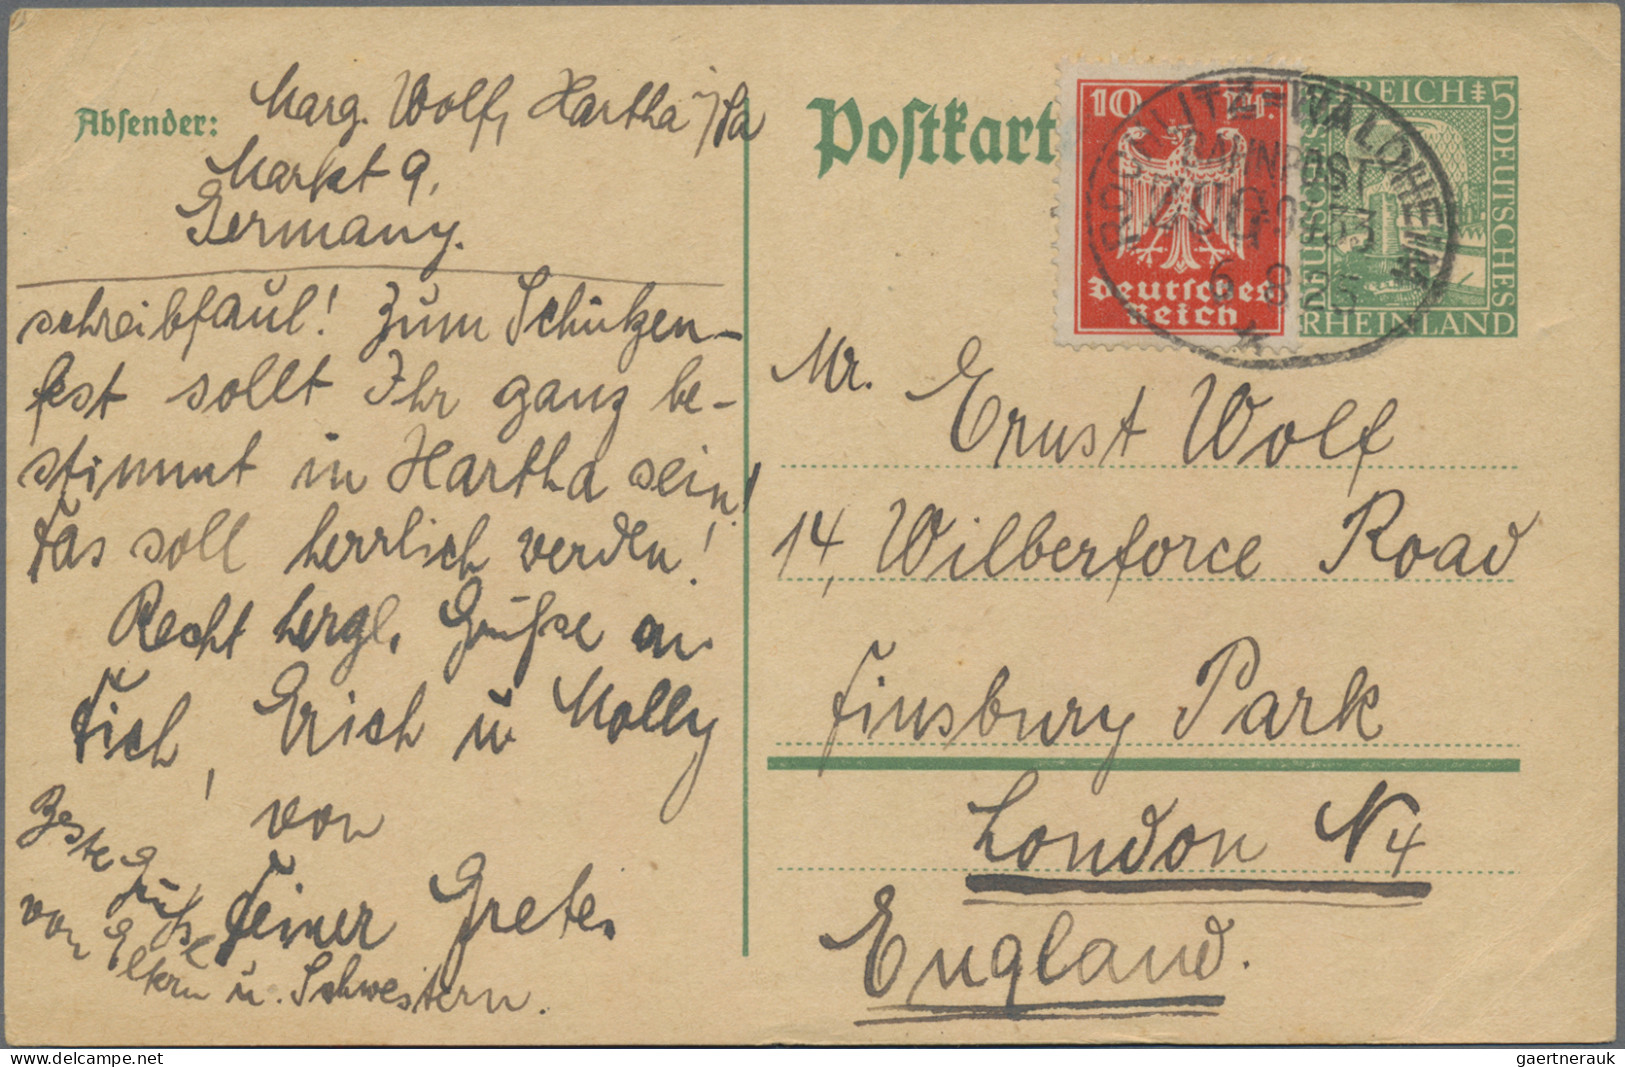 Absender: Marg. Wolf, Hartha i/Sa
Markt 9,
Germany.
schreibfaul! Zum Schützen-
fest sollt Ihr ganz be-
stimmt in Hartha sein!
Das soll herrlich werden!
Recht herzl. Grüße an
Dich, Erich u Molly
von
Deiner Grete.
Beste Grüße
von Eltern u. Schwestern.
Postkart
10 Pf.
Deutsches
Reich
REICH 5 DEUTSCHES
RHEINLAND
ROCHLITZ=WALDHEIM
BAHNPOST
ZUG 3933
6 8 25
Mr. Ernst Wolf
14, Wilberforce Road
Finsbury Park
London N4
England.
gaertnerauk